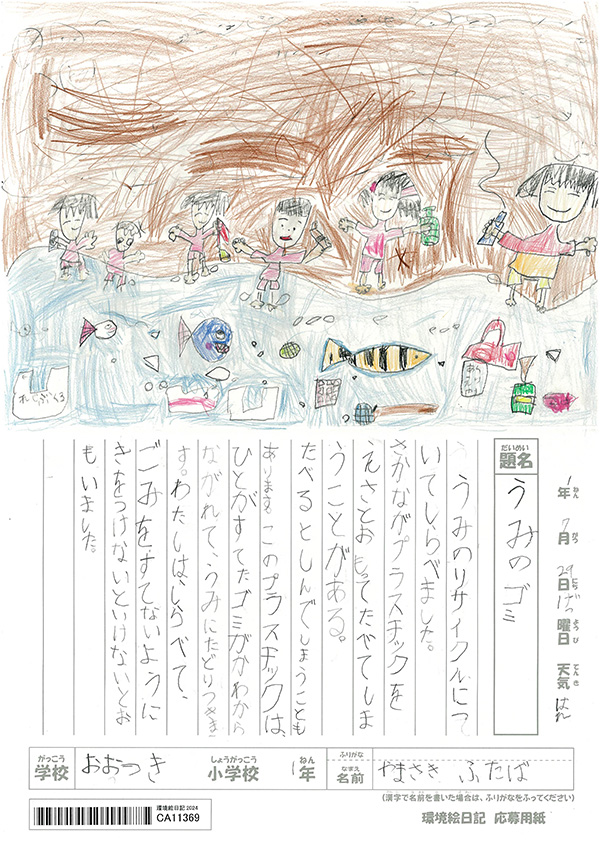 れじぶくろ
1年 7月 29日 げつ曜日 天気 はれ
ねん がつ にち ようび てんき
だいめい
題名
うみのゴミ
うみのリサイクルにつ
いてしらべました。
さかながプラスチックを
えさとおもってたべてしま
うことがある。
たべるとしんでしまうことも
あります。このプラスチックは、
ひとがすてたゴミがかわから
ながれて、うみにたどりつきま
す。わたしはしらべて、
ごみをすてないように
きをつけないといけないとお
もいました。
がっこう
学校
おおつき
しょうがっこう
小学校
ねん
1年
ふりがな
なまえ
名前
やまさき ふたば
(漢字で名前を書いた場合は、ふりがなをふってください)
環境絵日記2024
CA11369
環境絵日記 応募用紙